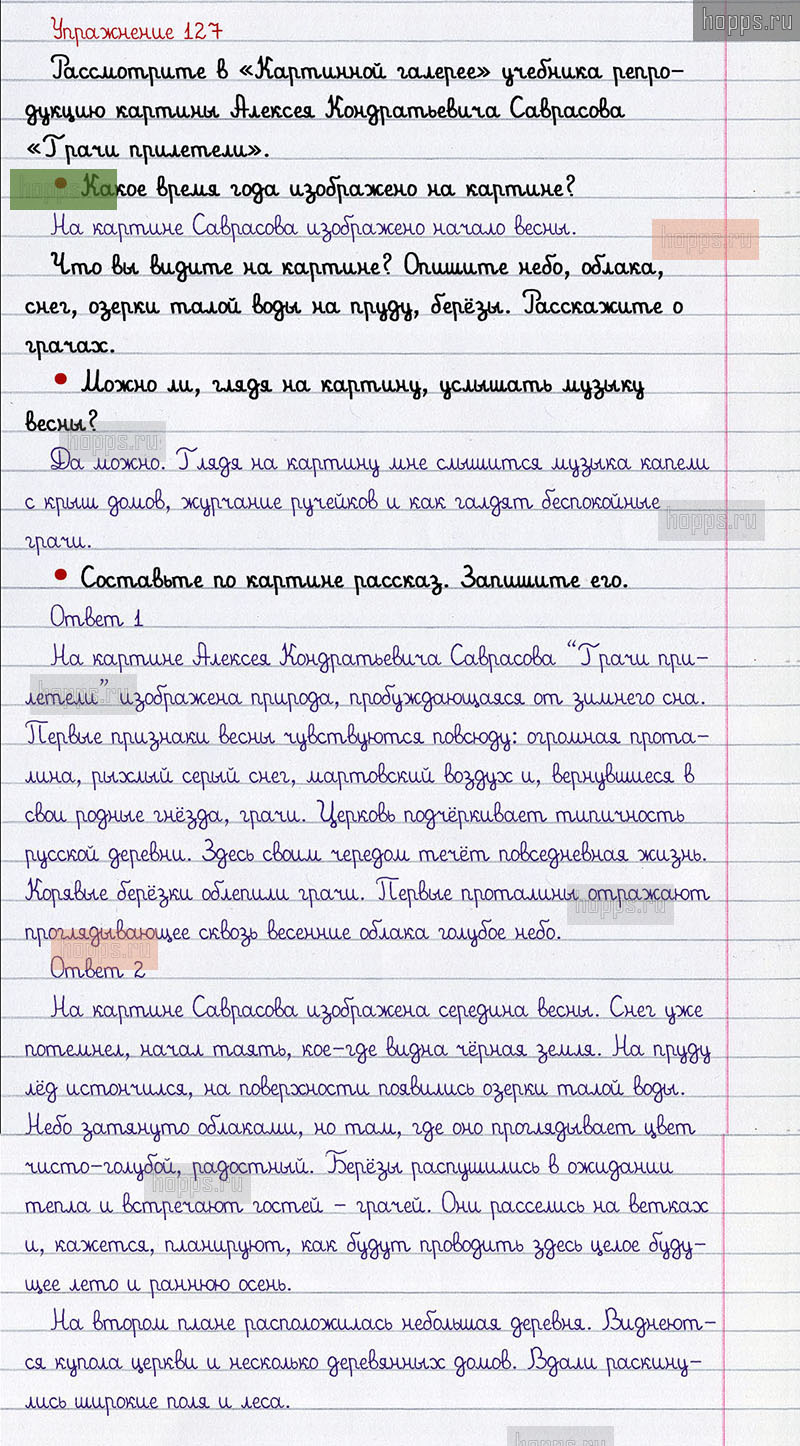 hopps.ru
Упражнение 127
Рассмотрите в «Картинной галерее» учебника репро-
дукцию картины Алексея Кондратьевича Саврасова
«Грачи прилетели».
hopps.ru
• Какое время года изображено на картине?
На картине Саврасова изображено начало весны.
hopps.ru
Что вы видите на картине? Опишите небо, облака,
снег, озерки талой воды на пруду, берёзы. Расскажите о
грачах.
• Можно ли, глядя на картину, услышать музыку
весны?
hopps.ru
Да можно. Глядя на картину мне слышится музыка капели
с крыш домов, журчание ручейков и как галдят беспокойные
hopps.ru
грачи.
• Составьте по картине рассказ. Запишите его.
Ответ 1
На картине Алексея Кондратьевича Саврасова “Грачи при-
hopps.ru
летели” изображена природа, пробуждающаяся от зимнего сна.
Первые признаки весны чувствуются повсюду: огромная прота-
лина, рыхлый серый снег, мартовский воздух и, вернувшиеся в
свои родные гнёзда, грачи. Церковь подчёркивает типичность
русской деревни. Здесь своим чередом течёт повседневная жизнь.
Корявые берёзки облепили грачи. Первые проталины отражают
hopps.ru
проглядывающее сквозь весенние облака голубое небо.
hopps.ru
Ответ 2
На картине Саврасова изображена середина весны. Снег уже
потемнел, начал таять, кое-где видна чёрная земля. На пруду
лёд истончился, на поверхности появились озерки талой воды.
Небо затянуто облаками, но там, где оно проглядывает цвет
чисто-голубой, радостный. Берёзы распушились в ожидании
hopps.ru
тепла и встречают гостей – грачей. Они расселись на ветках
и, кажется, планируют, как будут проводить здесь целое буду-
щее лето и раннюю осень.
На втором плане расположилась небольшая деревня. Виднеют-
ся купола церкви и несколько деревянных домов. Вдали раскину-
лись широкие поля и леса.
hopps.ru